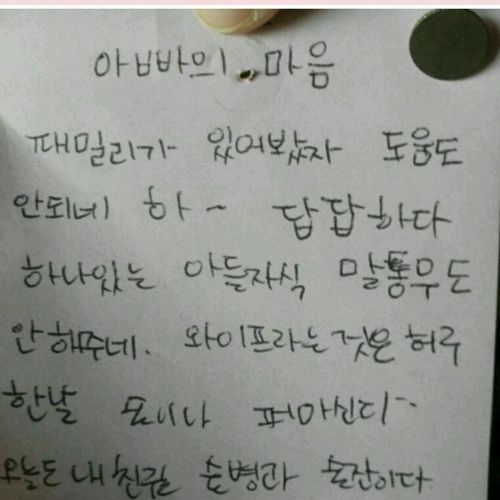 아빠의 마음
패밀리가 있어봤자 도움도
안되네 하~ 답답하다
하나있는 아들자식 말통무도
안해주네. 와이프라는것은 허루
한날 또이나 퍼마신다~
오늘도 내친궐 술병과 술잔이다